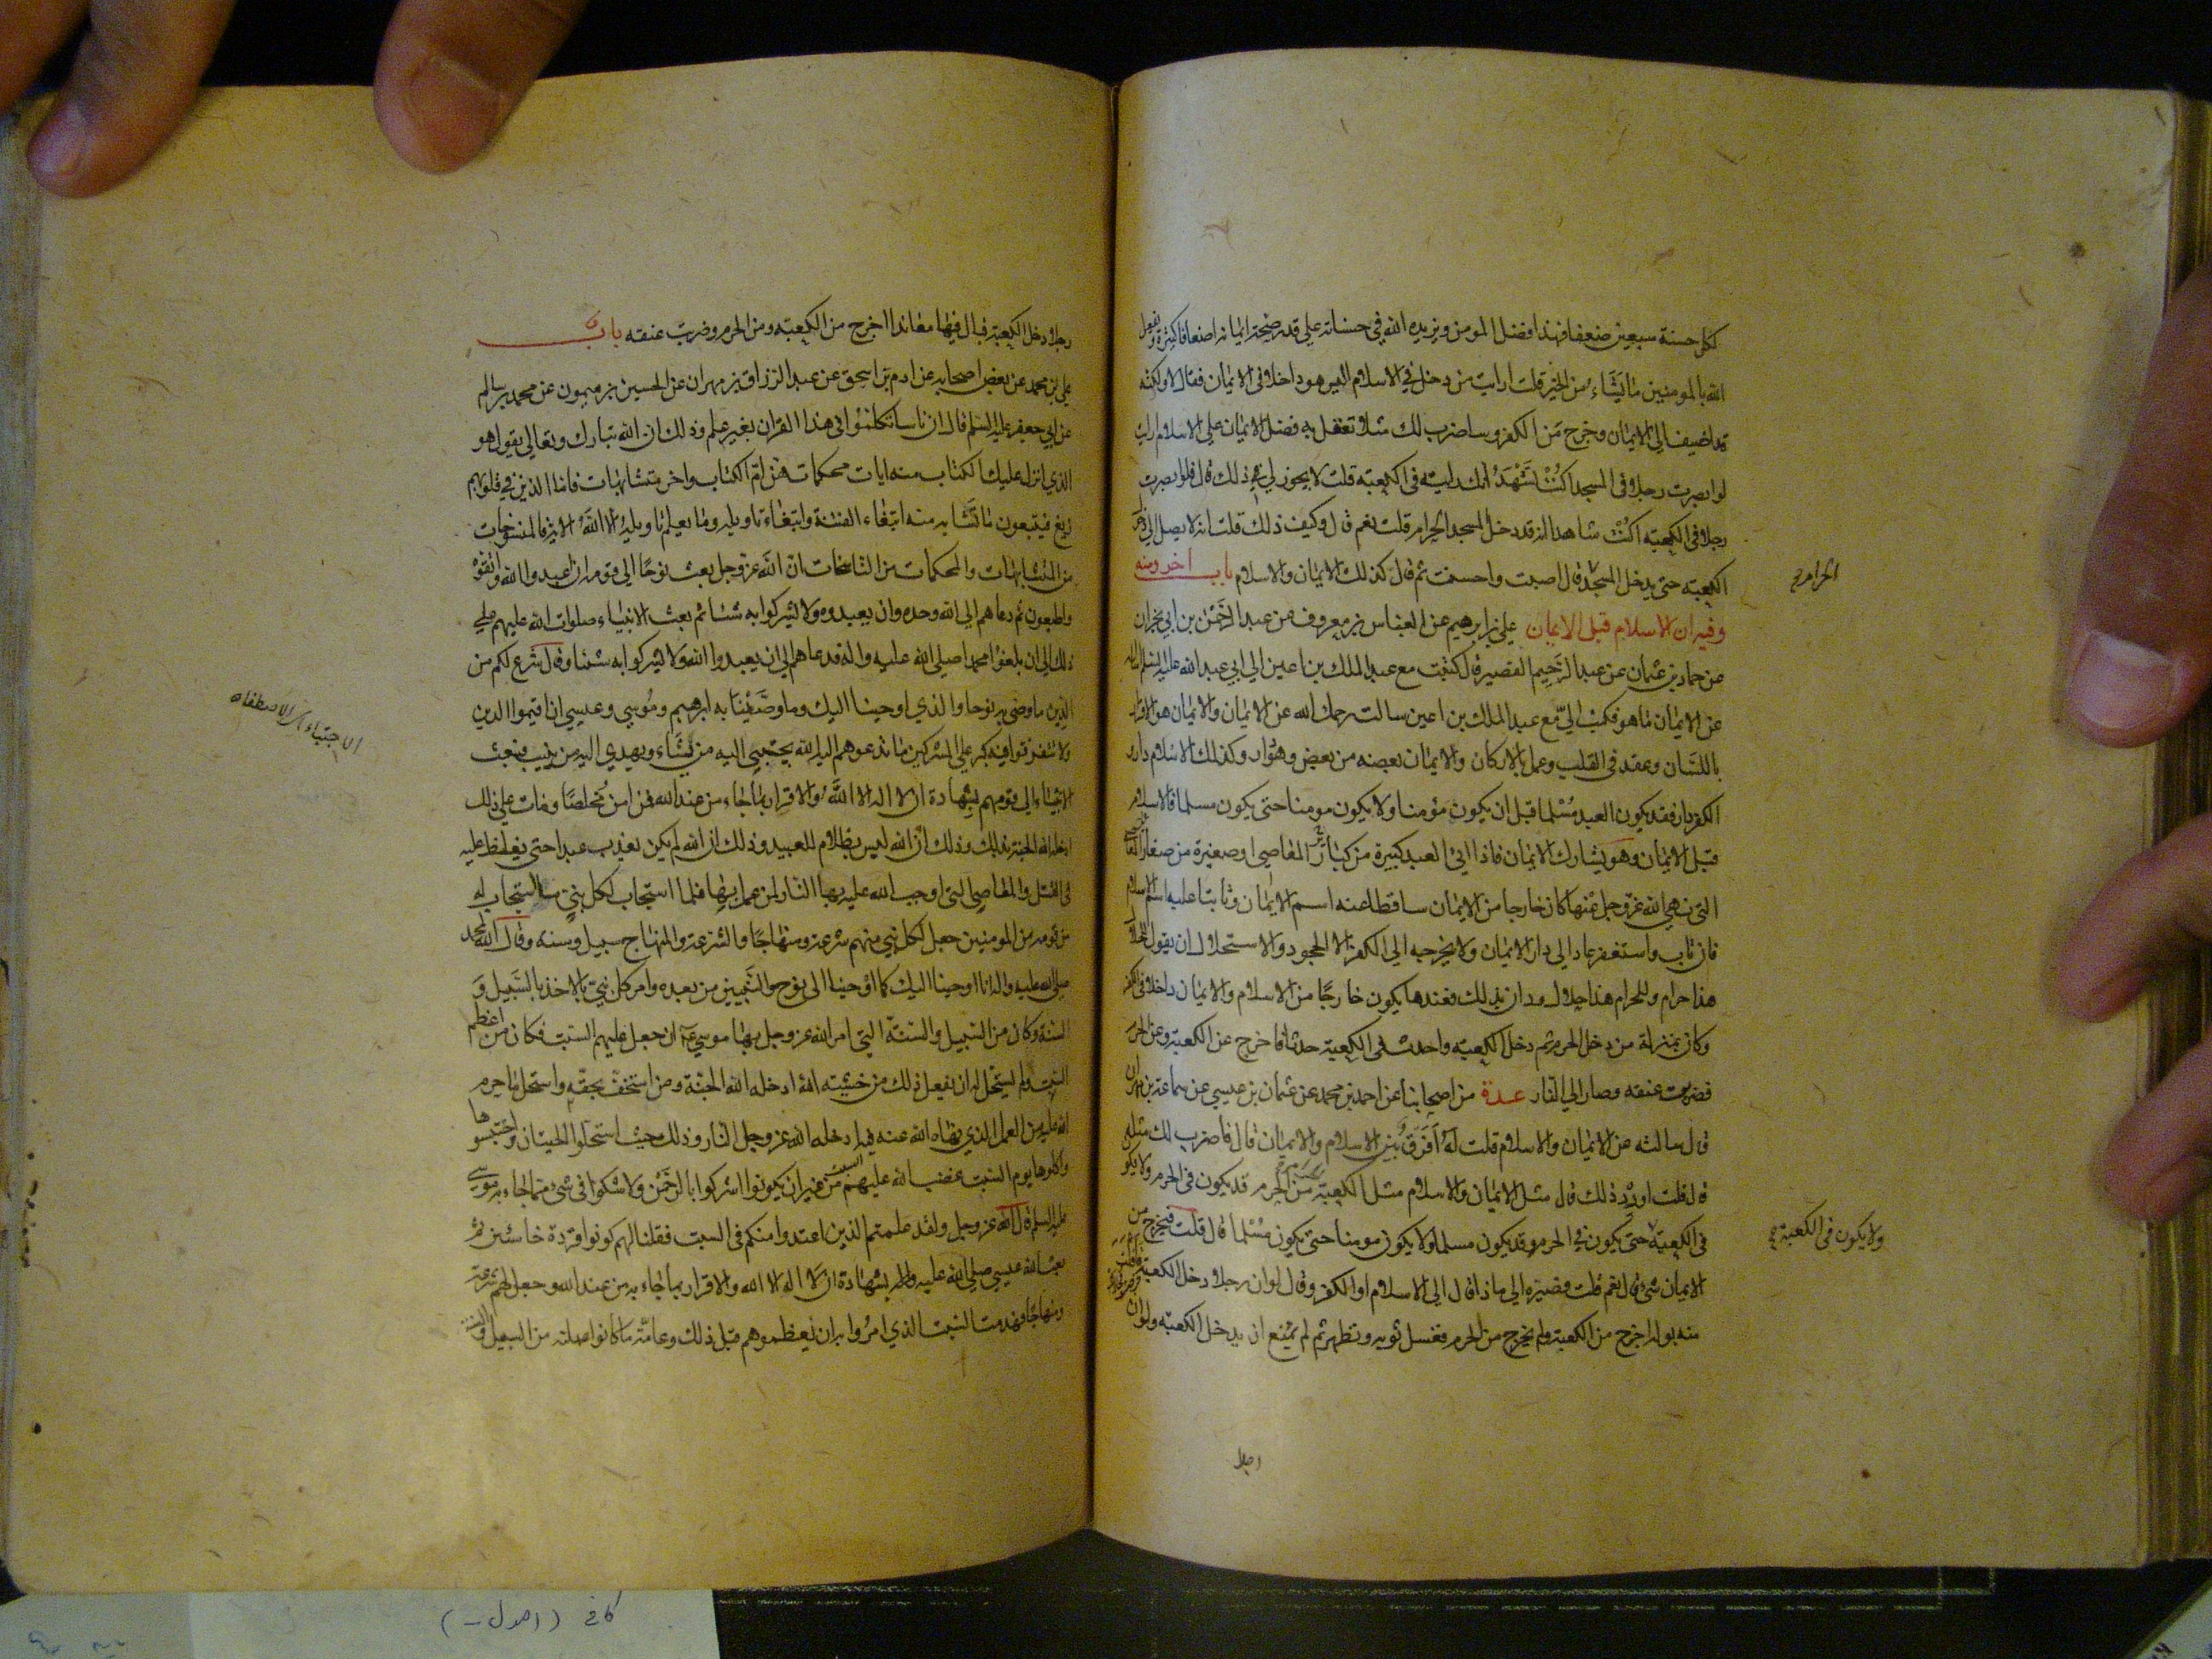 لكل حسنة سبعين ضعفا فهذا فضل المومن ويزيده الله في حسناته على قدر صحة ايمانه اضعافا كثيرة ويفعل
الله بالمومنين ما يشاء من الخير قلت ارايت من دخل في الاسلام اليس هو داخلا في الايمان فقال لا ولكنه
قد اضيف الى الايمان وخرج من الكفر وساضرب لك مثلا تعقل به فضل الايمان على الاسلام ارايت
لو ابصرت رجلا في المسجد اكنت تشهد انك رايته في الكعبة قلت لا يجوز لي ذلك قال فلو ابصرت
رجلا في الكعبة اكنت شاهدا انه قد دخل المسجد الحرام قلت نعم قال وكيف ذلك قلت انه لا يصل الى
الكعبة حتى يدخل المسجد قال اصبت واحسنت ثم قال كذلك الايمان والاسلام باب اخر ومنه
الحرام
وفيه ان الاسلام قبل الايمان علي بن ابرهيم عن العباس بن معروف عن عبد الرحمن بن ابي نجران
عن حماد بن عثمان عن عبد الرحيم القصير قال كتبت مع عبد الملك بن اعين الى ابي عبد الله عليه السلم اساله
عن الايمان ما هو فكتب الي مع عبد الملك بن اعين سالت رحمك الله عن الايمان والايمان هو الاقرار
باللسان وعقد في القلب وعمل بالاركان والايمان بعضه من بعض وهو دار وكذلك الاسلام دار
الكفر دار فقد يكون العبد مسلما قبل ان يكون مؤمنا ولا يكون مومنا حتى يكون مسلما فالاسلام
قبل الايمان وهو يشارك الايمان فاذا اتى العبد كبيرة من كبائر المعاصي او صغيرة من صغائر المعاصي
التي نهى الله عز وجل عنها كان خارجا من الايمان ساقطا عنه اسم الايمان وثابتا عليه اسم الاسلام
فان تاب واستغفر عاد الى دار الايمان ولا يخرجه الى الكفر الا الجحود والاستحلال ان يقول للحلال
هذا حرام وللحرام هذا حلال ودان بذلك فعندها يكون خارجا من الاسلام والايمان داخلا في الكفر
وكان بمنزلة من دخل الحرم ثم دخل الكعبة واحدث في الكعبة حدثا فاخرج عن الكعبة وعن الحرم
فضربت عنقه وصار الى النار عدة من اصحابنا عن احمد بن محمد عن عثمان بن عيسى عن سماعة بن مهران
قال سالته عن الايمان والاسلام قلت له افرق بين الاسلام والايمان قال فاضرب لك مثله
قال قلت اورد ذلك قال مثل الايمان والاسلام مثل الكعبة من الحرم قد يكون في الحرم ولا يكون
في الكعبة حتى يكون في الحرم وقد يكون مسلما ولا يكون مومنا حتى يكون مسلما قال قلت فيخرج من
ولا يكون في الكعبة
الايمان شيء قال نعم قلت فيصيره الى ماذا قال الى الاسلام او الكفر وقال لو ان رجلا دخل الكعبة
منه بوله اخرج من الكعبة ولم يخرج من الحرم فغسل ثوبه وتطهر ثم لم يمنع ان يدخل الكعبة ولو ان
رجلا
رجلا دخل الكعبة فبال فيها معاندا اخرج من الكعبة ومن الحرم وضربت عنقه باب
علي بن محمد عن بعض اصحابه عن ادم بن اسحق عن عبد الرزاق بن مهران عن الحسين بن ميمون عن محمد بن سالم
عن ابي جعفر عليه السلم قال ان ناسا تكلموا في هذا القران بغير علم وذلك ان الله تبارك وتعالى يقول هو
الذي انزل عليك الكتاب منه ايات محكمات هن ام الكتاب واخر متشابهات فاما الذين في قلوبهم
زيغ فيتبعون ما تشابه منه ابتغاء الفتنة وابتغاء تاويله وما يعلم تاويله الا الله الاية فالمنسوخات
من المتشابهات والمحكمات من الناسخات ان الله عز وجل بعث نوحا الى قومه ان اعبدوا الله واتقوه
واطيعون ثم دعاهم الى الله وحده وان يعبدوه ولا يشركوا به شيئا ثم بعث الانبياء صلوات الله عليهم على
ذلك الى ان بلغوا محمدا صلى الله عليه واله فدعاهم الى ان يعبدوا الله ولا يشركوا به شيئا وقال شرع لكم من
الدين ما وصى به نوحا والذي اوحينا اليك وما وصينا به ابرهيم وموسى وعيسى ان اقيموا الدين
ولا تتفرقوا فيه كبر على المشركين ما تدعوهم اليه الله يجتبي اليه من يشاء ويهدي اليه من ينيب فبعث
الاجتباء الاصطفاء
الانبياء الى قومهم بشهادة ان لا اله الا الله والاقرار بما جاء من عند الله فمن امن مخلصا ومات على ذلك
ادخله الله الجنة بذلك وذلك ان الله ليس بظلام للعبيد وذلك ان الله لم يكن يعذب عبدا حتى يغلظ عليه
في القتل والمعاصي التي اوجب الله عليه بها النار لمن عمل بها فلما استجاب لكل نبي من استجاب له
من قومه من المومنين جعل لكل نبي منهم شرعة ومنهاجا والشرعة والمنهاج سبيل وسنة وقال الله لمحمد
صلى الله عليه واله انا اوحينا اليك كما اوحينا الى نوح والنبيين من بعده وامر كل نبي بالاخذ بالسبيل و
السنة وكان من السبيل والسنة التي امر الله عز وجل بها موسى ع ان جعل عليهم السبت فكان من اعظم
السبت ولم يستحل ان يفعل ذلك من خشية الله ادخله الله الجنة ومن استخف بحقه واستحل ما حرم
الله عليه من العمل الذي نهاه الله عنه فيه ادخله الله عز وجل النار وذلك حيث استحلوا الحيتان واحتبسوها
واكلوها يوم السبت غضب الله عليهم من غير ان يكونوا اشركوا بالرحمن ولا شكوا في شيء مما جاء به موسى
عليه السلم قال الله عز وجل ولقد علمتم الذين اعتدوا منكم في السبت فقلنا لهم كونوا قردة خاسئين ثم
بعث الله عيسى صلى الله عليه واله بشهادة ان لا اله الا الله والاقرار بما جاء به من عند الله وجعل لهم شرعة
ومنهاجا فهدمت السبت الذي امروا به ان يعظموه قبل ذلك وعامة ما كانوا عليه من السبيل والسنة
كافي (اصول -)